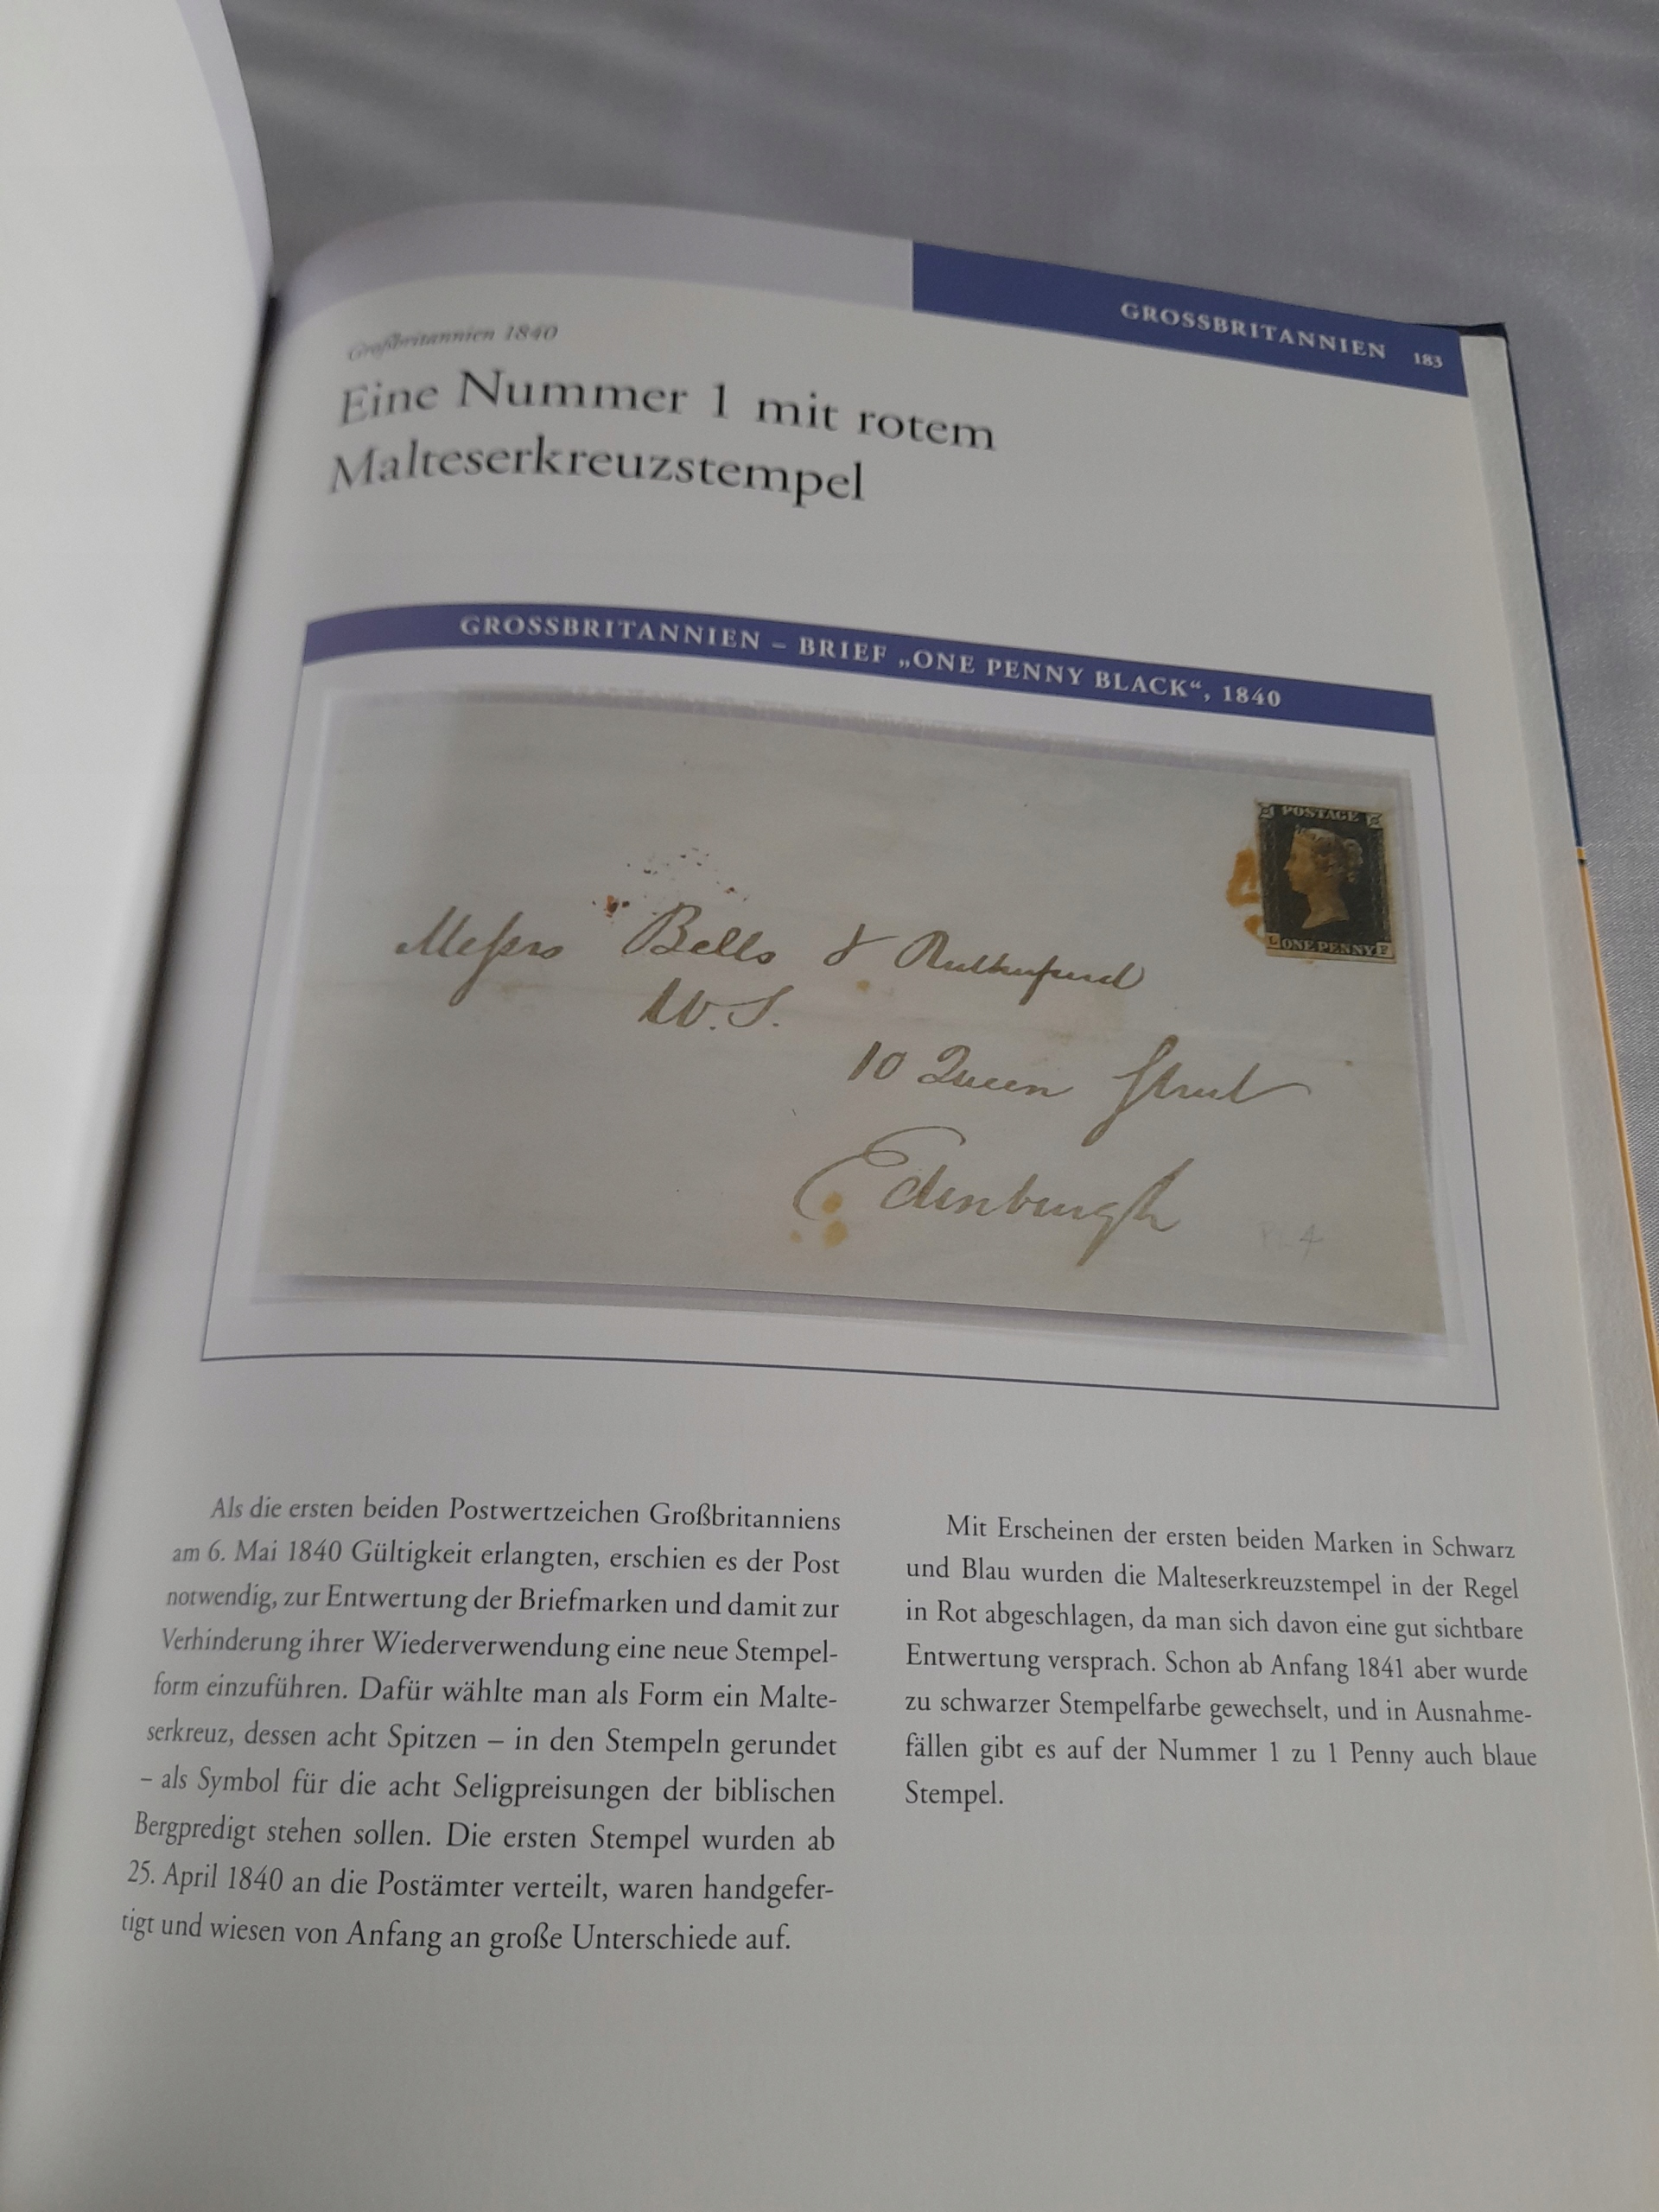 GROSSBRITANNIEN 183
Großbritannien 1840
Eine Nummer 1 mit rotem
Malteserkreuzstempel
GROSSBRITANNIEN – BRIEF „ONE PENNY BLACK“, 1840
POSTAGE
ONE PENNY F
Messrs Bells & Rutherfurd
W.S.
10 Queen Street
Edinburgh
4
Als die ersten beiden Postwertzeichen Großbritanniens
am 6. Mai 1840 Gültigkeit erlangten, erschien es der Post
notwendig, zur Entwertung der Briefmarken und damit zur
Verhinderung ihrer Wiederverwendung eine neue Stempel-
form einzuführen. Dafür wählte man als Form ein Malte-
serkreuz, dessen acht Spitzen – in den Stempeln gerundet
– als Symbol für die acht Seligpreisungen der biblischen
Bergpredigt stehen sollen. Die ersten Stempel wurden ab
25. April 1840 an die Postämter verteilt, waren handgefer-
tigt und wiesen von Anfang an große Unterschiede auf.
Mit Erscheinen der ersten beiden Marken in Schwarz
und Blau wurden die Malteserkreuzstempel in der Regel
in Rot abgeschlagen, da man sich davon eine gut sichtbare
Entwertung versprach. Schon ab Anfang 1841 aber wurde
zu schwarzer Stempelfarbe gewechselt, und in Ausnahme-
fällen gibt es auf der Nummer 1 zu 1 Penny auch blaue
Stempel.